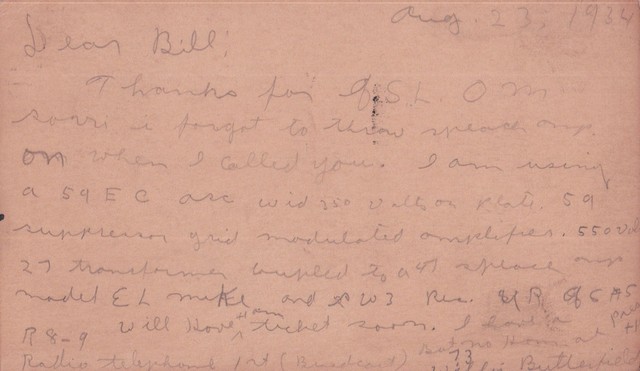 Aug. 23, 1934
Dear Bill:
Thanks for QSL. OM
sorri i forgot to throw speach amp.
on when I called you. I am using
a 59 E C osc wid 350 volts on plate. 59
suppressor grid modulated amplifier. 550 vo
27 transformer coupled to a 47 speach amp
model E L mike and a PW3 Rec. UR QSA5
R 8-9 will have Ham ticket soon. I have a
Radio telephone 1st (Broadcast)
73
Butterfield